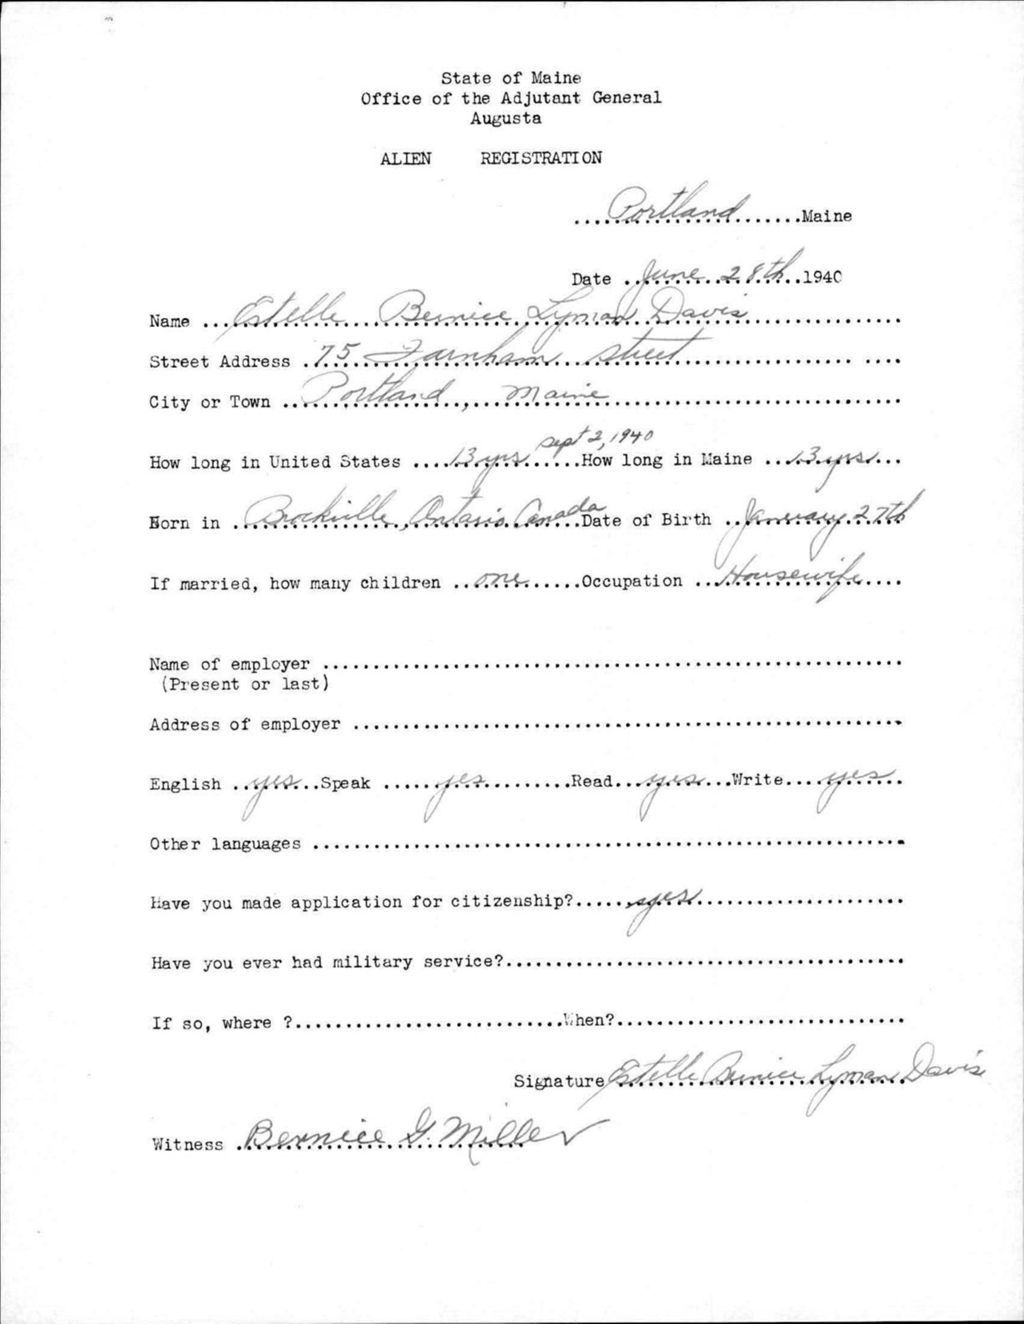 State of Maine
Office of the Adjutant General
Augusta
ALIEN REGISTRATION
....Portland.......Maine
Date ..June..28th..1940
Name ...Estelle....Bernice..Lyman Davis..................
Street Address .75..Farnham...street..........................
City or Town ..Portland.,...Maine...................................
Sept 2, 1940
How long in United States ....13 yrs......How long in Maine ...13 yrs....
Born in .Brockville, Ontario, Canada..Date of Birth ..January 27th
If married, how many children ..one......Occupation ..Housewife....
Name of employer ..........................................................
(Present or last)
Address of employer .......................................................
English ..yes...Speak ......yes..........Read...yes...Write....yes..
Other languages ...........................................................
Have you made application for citizenship?......yes.....................
Have you ever had military service?........................................
If so, where ?...........................When?.............................
Signature Estelle Bernice Lyman Davis
Witness .Bernice G. Miller